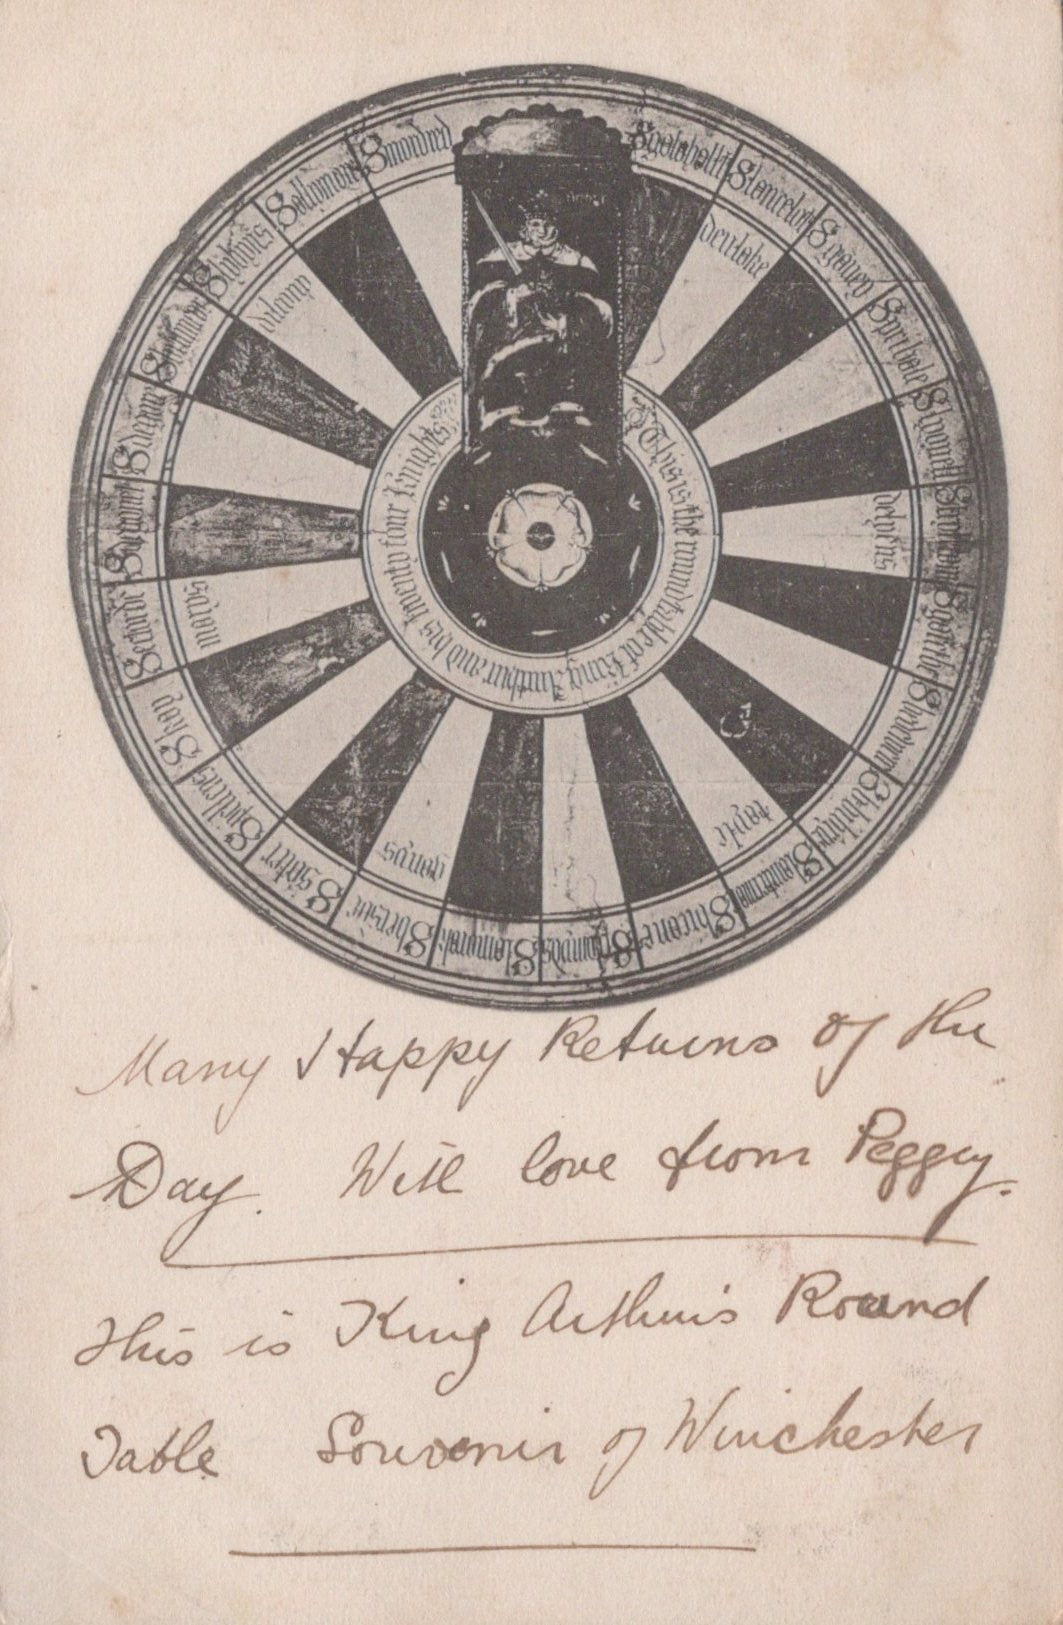 S galahallt
S lancelot
deulake
S gauen
S pcivale
S lyonell
S trystram
delyens
S garethe
S bedwere
S blubrys
S lacotemale
tayle
S lucane
S plomyd
S lamorak
S bersun
ganys
S safer
S pelleus
S kay
S ectorde
marys
S dagonet
S degore
S brumear
S lybyus
dysconyus
S allynore
S mordred
This is the rownd table of kyng Arthur and his twenty four knyghts
Many Happy Returns of the
Day. With love from Peggy.
This is King Arthur's Round
Table Souvenir of Winchester